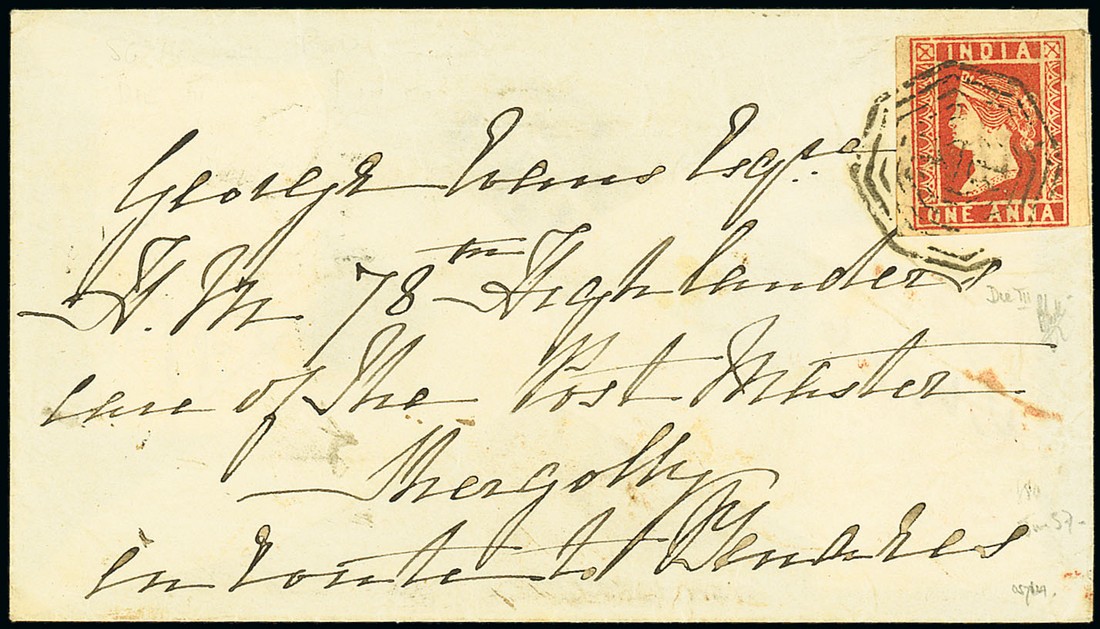 INDIA
ONE ANNA
George Evans Esqre
H.M. 78th Highlanders
care of The Post Master
Shergotty
en route to Benares
Die III